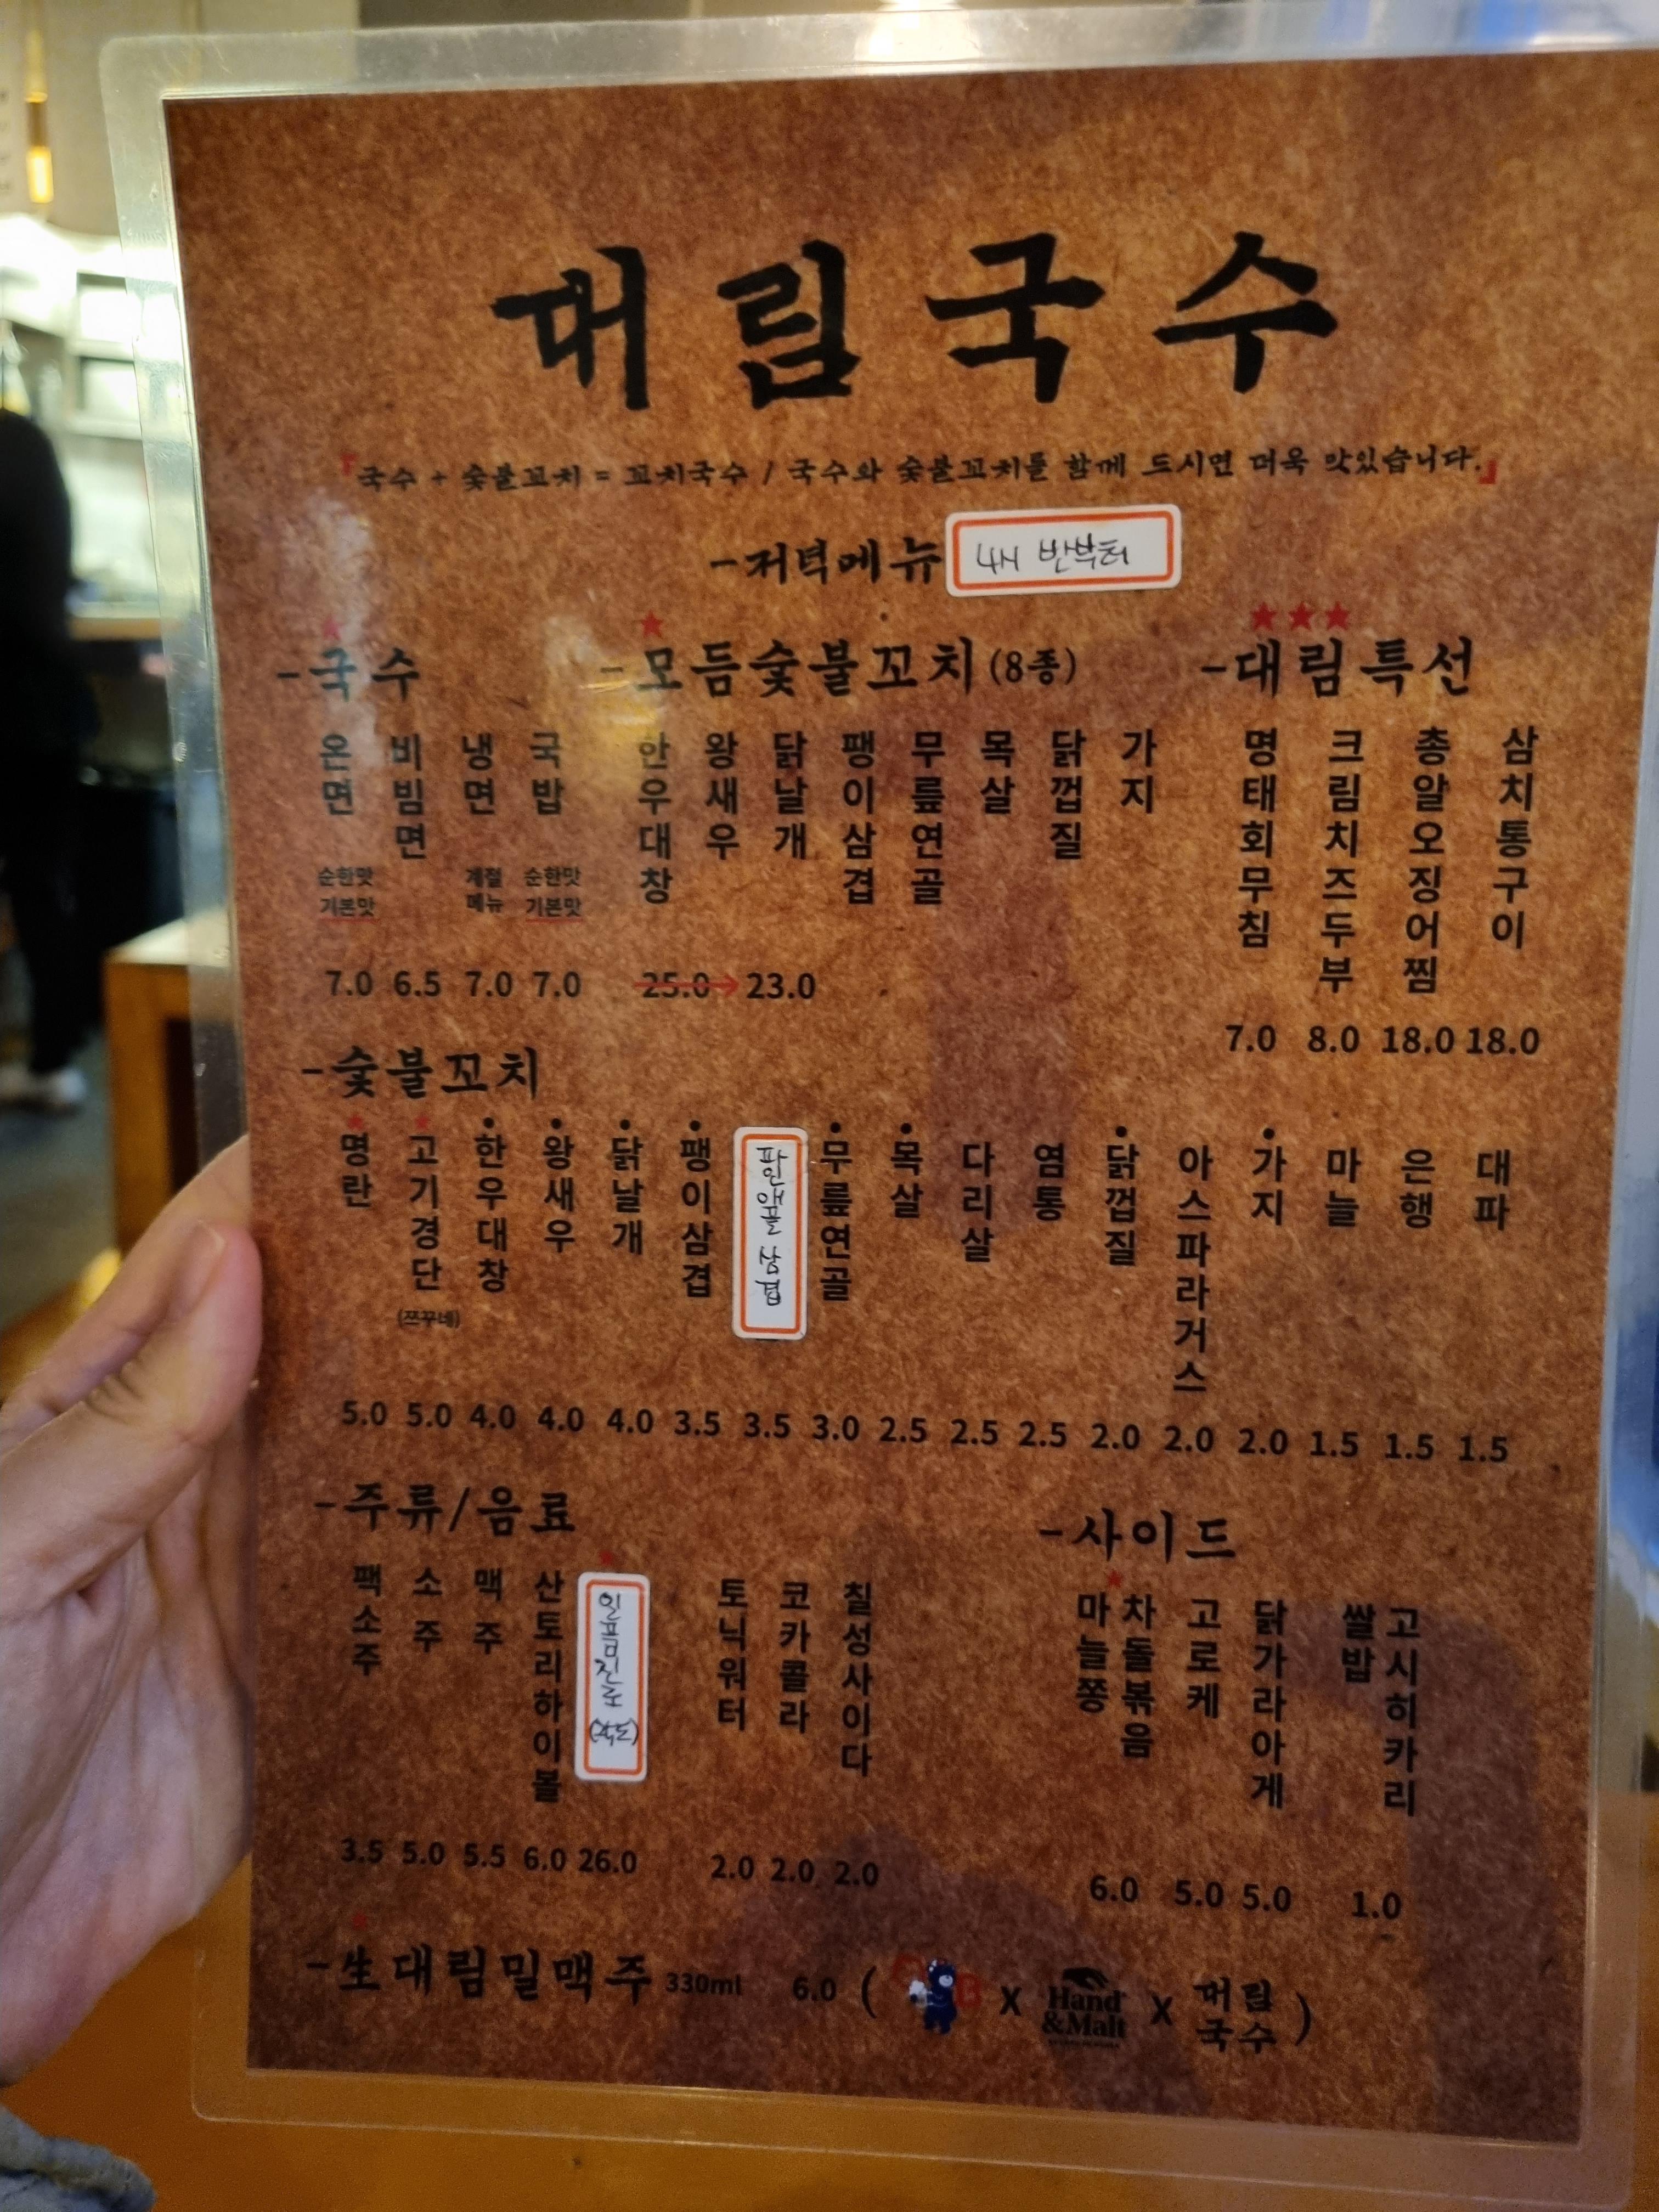 대림국수
『국수 + 숯불꼬치 = 꼬치국수 / 국수와 숯불꼬치를 함께 드시면 더욱 맛있습니다.』
-저녁메뉴 4시 반부터
-국수
온면 순한맛 기본맛 7.0
비빔면 6.5
냉면 계절메뉴 7.0
국밥 순한맛 기본맛 7.0
-모듬숯불꼬치(8종)
한우대창
왕새우
닭날개
팽이삼겹
무릎연골
목살
닭껍질
가지
25.0→23.0
-대림특선
명태회무침 7.0
크림치즈두부 8.0
총알오징어찜 18.0
삼치통구이 18.0
-숯불꼬치
명란 5.0
고기경단 (쯔꾸네) 5.0
한우대창 4.0
왕새우 4.0
닭날개 4.0
팽이삼겹 3.5
파인애플 삼겹 3.5
무릎연골 3.0
목살 2.5
다리살 2.5
염통 2.5
닭껍질 2.0
아스파라거스 2.0
가지 2.0
마늘 1.5
은행 1.5
대파 1.5
-주류/음료
팩소주 3.5
소주 5.0
맥주 5.5
산토리하이볼 6.0
일품진로 26.0
토닉워터 2.0
코카콜라 2.0
칠성사이다 2.0
-사이드
마늘쫑 차돌볶음 6.0
고로케 5.0
닭가라아게 5.0
쌀밥 고시히카리 1.0
-生대림밀맥주 330ml 6.0 ( X Hand &Malt X 대림국수 )